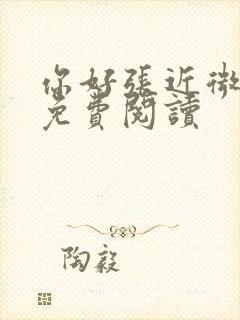 你好張近微
免費閱讀
陶毅